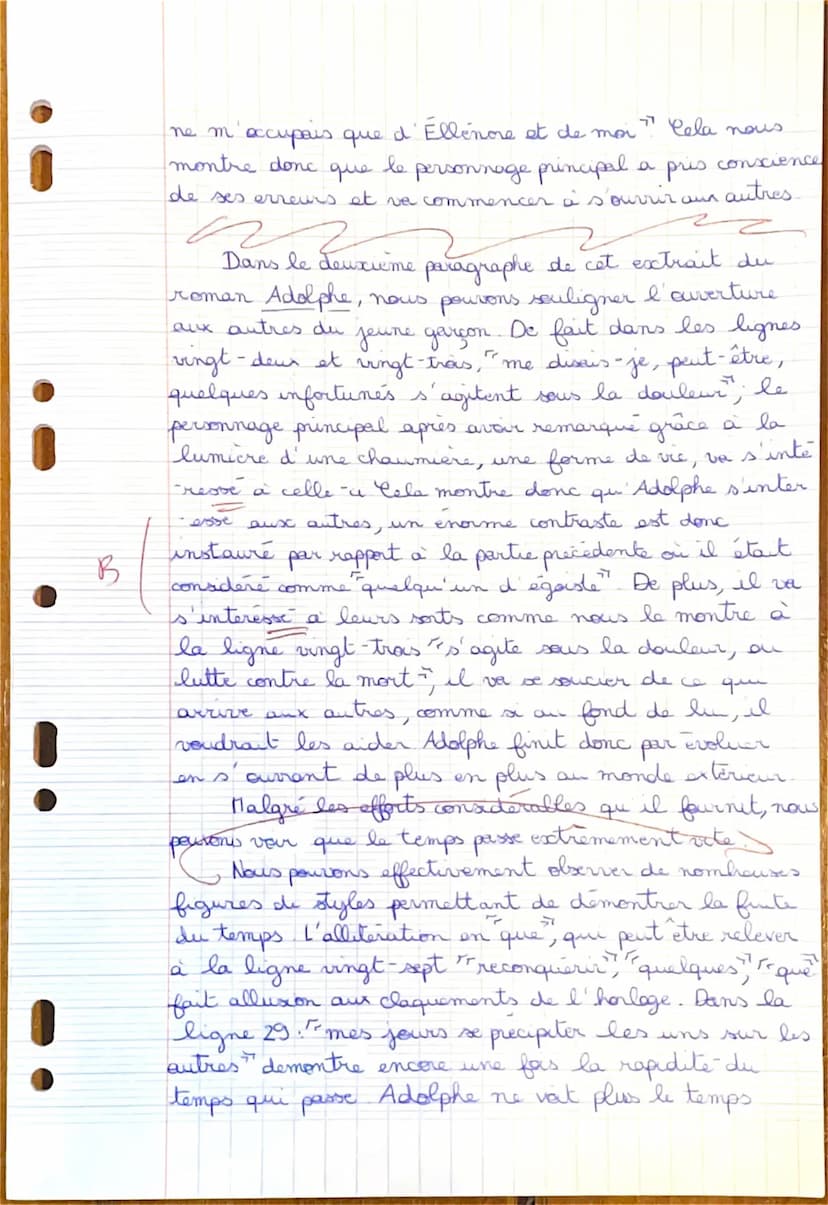 ne m'occupais que d'Éllénore et de moi" Cela nous
montre donc que le personnage principal a pris conscience
de ses erreurs et va commencer à s'ouvrir aux autres.
Dans le deuxième paragraphe de cet extrait du
roman Adolphe, nous pouvons souligner l'ouverture
aux autres du jeune garçon. De fait dans les lignes
vingt-deux et vingt-trois, "me disais-je, peut-être,
quelques infortunés s'agitent sous la douleur", le
personnage principal après avoir remarqué grâce à la
lumière d'une chaumière, une forme de vie, va s'inté
-ressé à celle-ci Cela montre donc qu'Adolphe s'inter
-esse aux autres, un énorme contraste est donc
B
instauré par rapport à la partie précédente où il était
considéré comme "quelqu'un d'égoïste". De plus, il va
s'interéssé à leurs sorts comme nous le montre à
la ligne vingt-trois "s'agite sous la douleur, ou
lutte contre la mort", il va se soucier de ce qui
arrive aux autres, comme si au fond de lui, il
voudrait les aider. Adolphe finit donc par évoluer
en s'ouvrant de plus en plus au monde extérieur.
Malgré les efforts considérables qu'il fournit, nous
pouvons voir que le temps passe extrêmement vite.
Nous pouvons effectivement observer de nombreuses
figures de styles permettant de démontrer la fuite
du temps. L'allitération en "que", qui peut être relever
à la ligne vingt-sept "reconquérir", "quelques", "que"
fait allusion aux claquements de l'horloge. Dans la
ligne 29 : "mes jours se précipiter les uns sur les
autres" démontre encore une fois la rapidité du
temps qui passe. Adolphe ne voit plus le temps